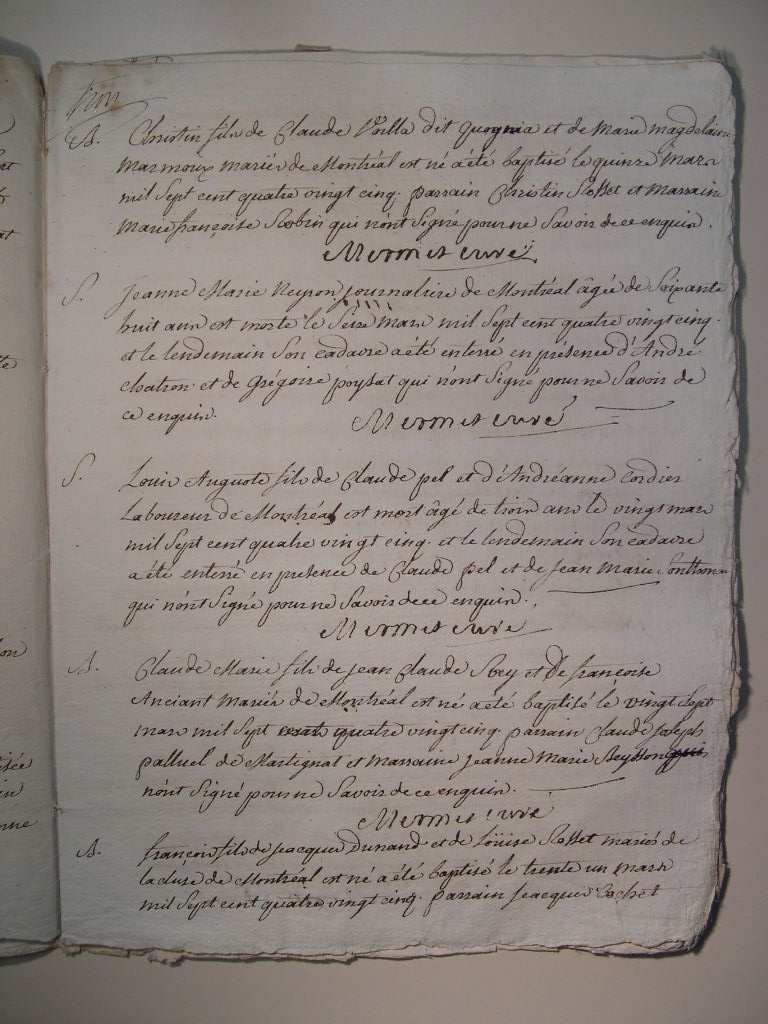 B. Christin fils de Claude Voilla dit quognia et de Marie Magdelaine
Marmoux mariés de Montréal est né a été baptisé le quinze Mars
mil sept cent quatre vingt cinq. parrain Christin Rosset et Marraine
Marie françoise Robin qui n'ont signé pour ne savoir de ce enquis.
Mermet curé
S. Jeanne Marie Neyron journaliere de Montréal âgée de soixante
huit ans est morte le seize mars mil sept cent quatre vingt cinq.
et le lendemain son cadavre a été enterré en présence d'André
chatron et de Grégoire poysat qui n'ont signé pour ne savoir de
ce enquis.
Mermet curé
S. Louis Auguste fils de Claude pel et d'Andréanne Cordier
Laboureur de Montréal est mort âgé de trois ans le vingt mars
mil sept cent quatre vingt cinq. et le lendemain son cadavre
a été enterré en présence de Claude pel et de Jean Marie
qui n'ont signé pour ne savoir de ce enquis.
Mermet curé
B. Claude Marie fils de Jean Claude Rey et de françoise
Anciant mariés de Montréal est né a été baptisé le vingt sept
mars mil sept cent quatre vingt cinq. parrain Claude Joseph
palluel de Martignat et Marraine Jeanne Marie Rey
n'ont signé pour ne savoir de ce enquis.
Mermet curé
B. françois fils de Jacques Dunand et de Loüise Rosset mariés de
la cluse de Montréal est né a été baptisé le trente un mars
mil sept cent quatre vingt cinq. parrain Jacques Cochet